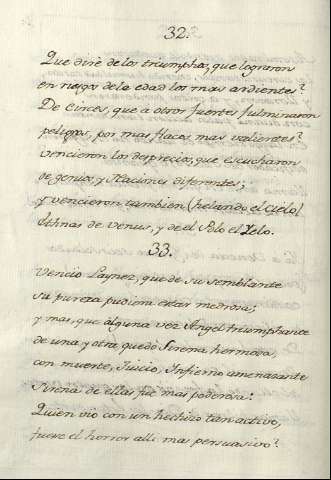 32.
Que dirè de los triumphos, que lograron
en riesgos de la edad los mas ardientes?
De Circes, que a otros fuertes fulminaron
peligros, por mas flacos mas valientes?
Vencieron los desprecios, que escucharon
de genios, y Naciones diferentes;
y vencieron tambien (helando el cielo)
Ethnas de Venus, y de el Polo el Zelo.
33.
Vencio Laynez, que de su semblante
su pureza pudiera estar medrosa;
y mas, que alguna vez Angel triumphante
de una y otra quedò Sirena hermosa,
con muerte, Juicio, Infierno amenazante
Sirena de ellas fue mas poderosa:
Quien vio con un hechizo tan activo,
fuese el horror alli mas persuasivo?